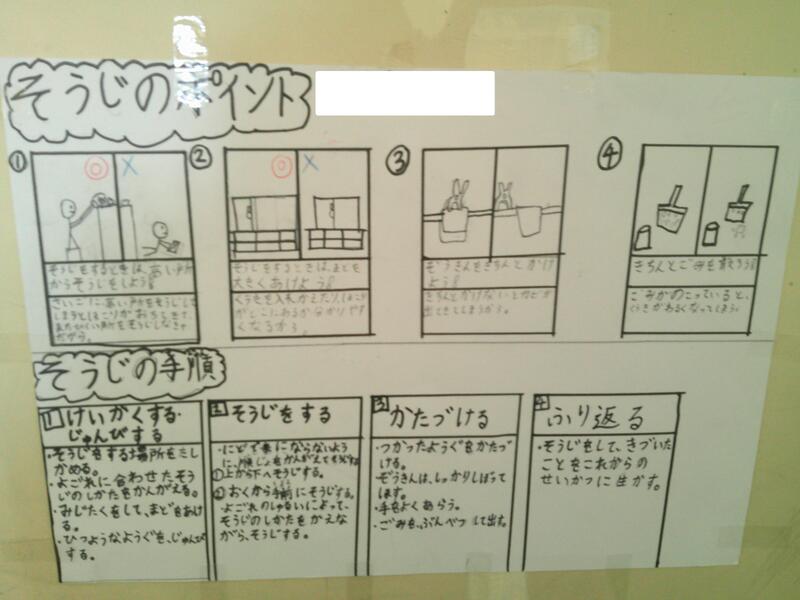 そうじのポイント
①
◎
×
そうじをするときは、高い所
からそうじをしよう!
さいごに高い所をそうじして
しまうとほこりがおちてきて、
またひくい所をそうじしなきゃ
だから。
②
◎
×
そうじをするときは、まどを
大きくあけよう!
くうきを入れかえたり、ほこり
がどこにあるか分かりやす
くなるから。
③
ぞうきんをきちんとかけ
よう!
きちんとかけないとカビが
出てきてしまうから。
④
きちんとごみを
ごみがのこっていると、
くうきがわるくなってしまう。
そうじの手順
1 けいかくする・
じゅんびする
・そうじをする場所をたし
かめる。
・よごれに合わせたそう
じのしかたをかんがえる。
・みじたくをして、まどをあけ
る。
・ひつようなようぐを、じゅんび
する。
2 そうじをする
・にどで
に、順じょをかんがえて
①上から下へそうじする。
②おくから手前にそうじする。
・よごれのしゅるいによって、
そうじのしかたをかえな
がら、そうじする。
3 かたづける
・つかったようぐをかたづ
ける。
・ぞうきんは、しっかりしぼって
ほす。
・手をよくあらう。
・ごみを、ぶんべつして出す。
4 ふり返る
・そうじをして、きづいた
ことをこれからの
せいかつに生かす。